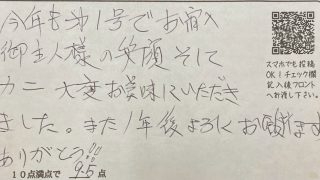 今年も第1号でお宿入
御主人様の笑顔そして
カニ大変お美味にいただき
ました。また1年後よろにお願ます
ありがとう!!
10点満点で 95 点
スマホでも投稿
OK!チェック欄
記入後フロント
へお渡し下さい。